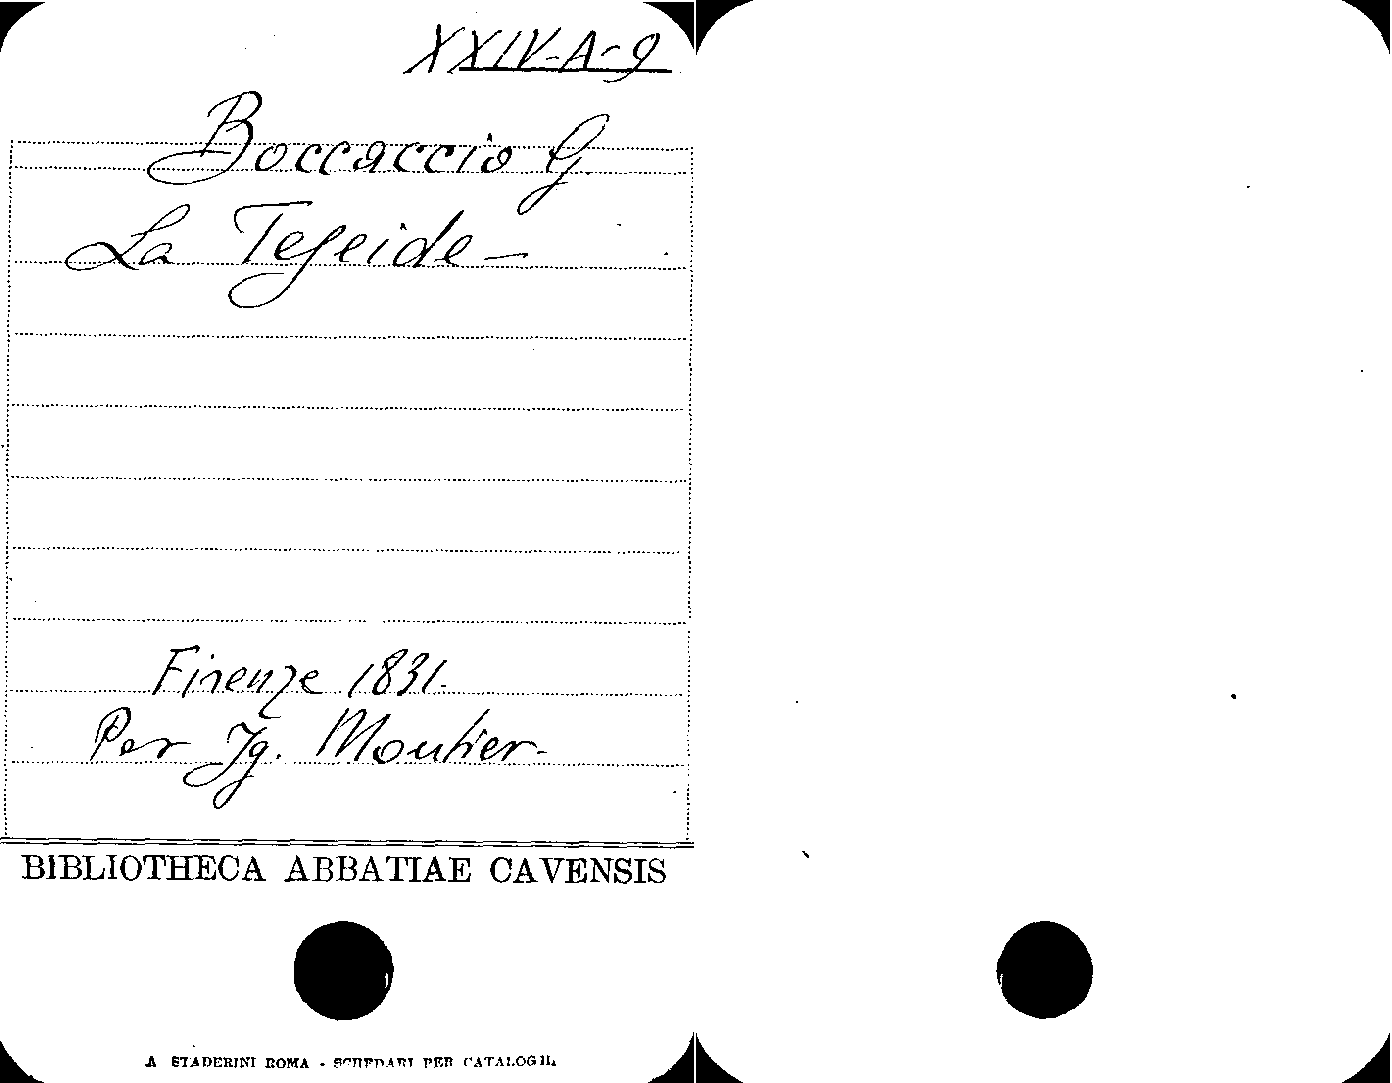 XXIV-A-9
Boccaccio G
La Teseide-
Firenze 1831.
Per Ig. Moutier-
BIBLIOTHECA ABBATIAE CAVENSIS
A STADERINI ROMA - SCHEDARI PER CATALOGHI.